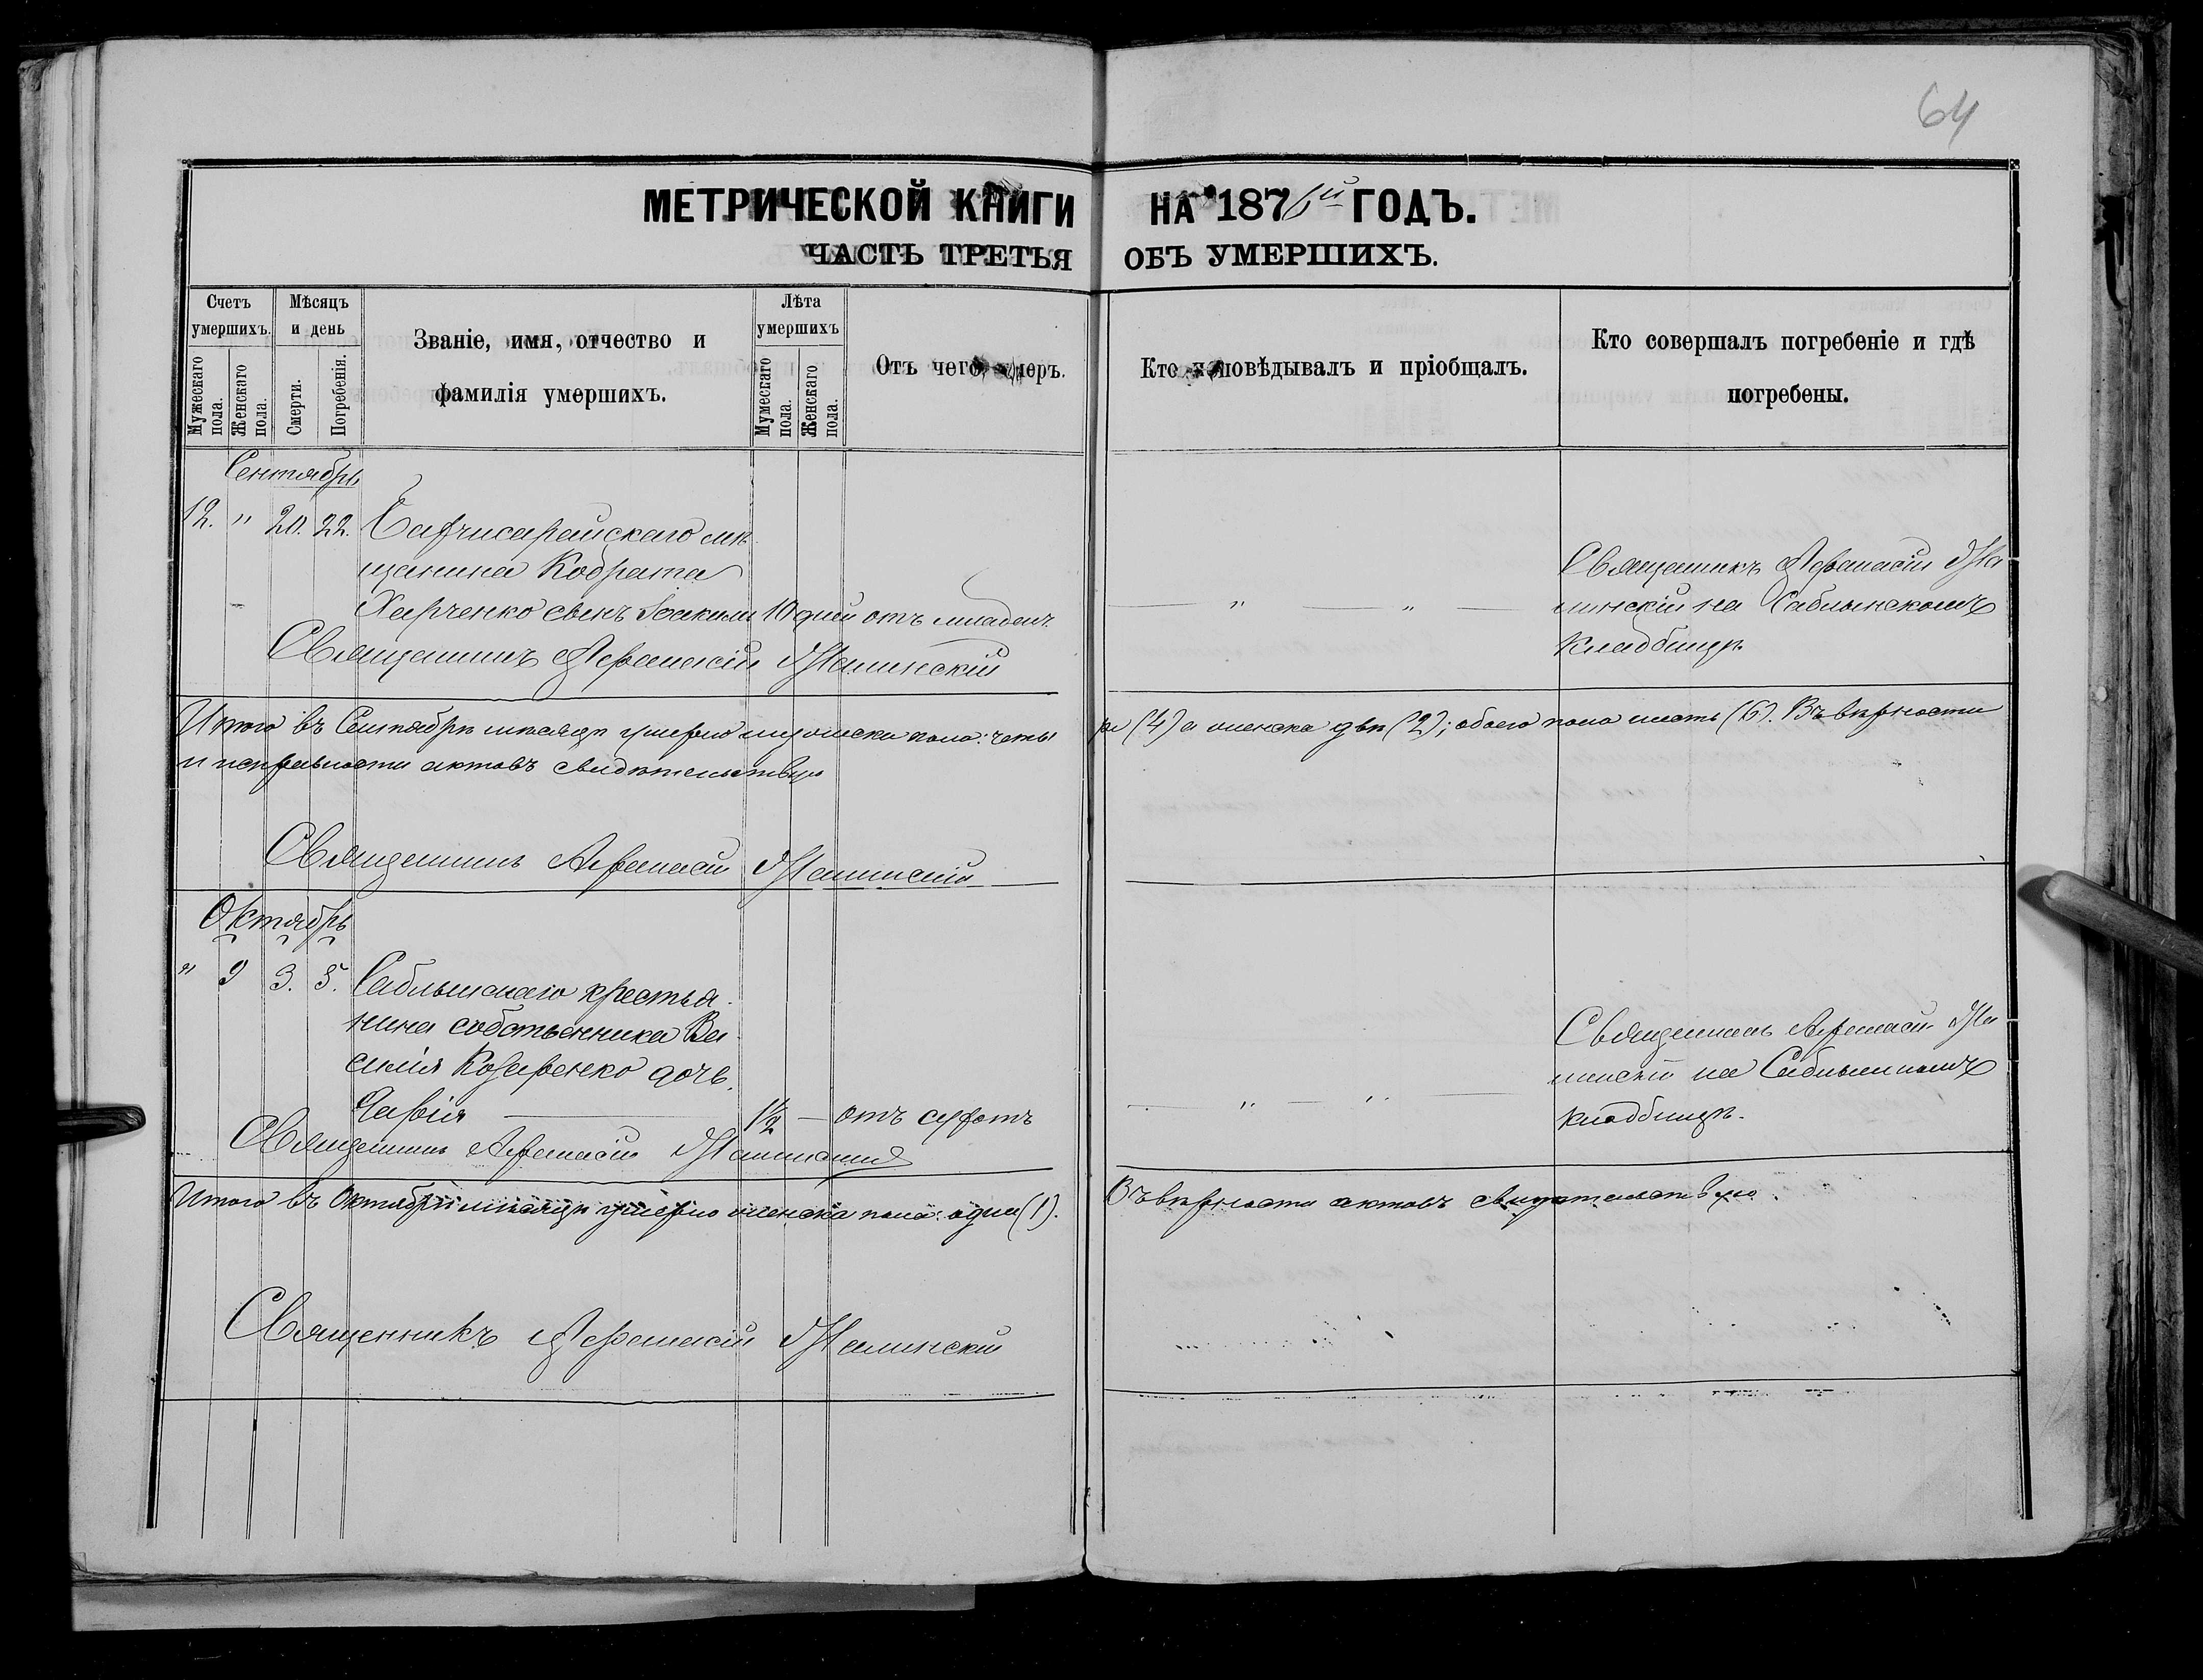 64
МЕТРИЧЕСКОЙ КНИГИ НА 1876й ГОДЪ.
ЧАСТЬ ТРЕТЬЯ ОБЪ УМЕРШИХЪ.
Счетъ умершихъ.
Мужескаго пола.
Женскаго пола.
Мѣсяцъ и день
Смерти.
Погребенія.
Званіе, имя, отчество и
фамилія умершихъ.
Лѣта умершихъ
Мужескаго пола.
Женскаго пола.
Отъ чего умеръ.
Кто исповѣдывалъ и пріобщалъ.
Кто совершалъ погребеніе и гдѣ
погребены.
Сентябрь
12. " 20. 22. Бахчисарайскаго мѣ
щанина Кодрата
Харченко сынъ Іоакимъ 10 дней отъ младен.
" "
Священникъ Афанасій
на Саблынскомъ
кладбищѣ
Священникъ Афанасій
Итого въ Сентябрѣ мѣсяцѣ умерло мужеска пола: четы
ре (4) а женска двѣ (2); обоего пола шесть (6). Въ вѣрности
и исправности актовъ свидѣтельствую
Священникъ Афанасій
Октябрь
" 9 3. 5. Саблынскаго крестья
нина собственника Ва
силія Козиренко дочь
1/2 — отъ сухотъ
" "
Священникъ Афанасій
на Саблынскомъ
кладбищѣ.
Священникъ Афанасій
Итого въ Октябрѣ мѣсяцѣ умерло женска пола: одна (1).
Въ вѣрности актовъ свидѣтельствую
Священникъ Афанасій